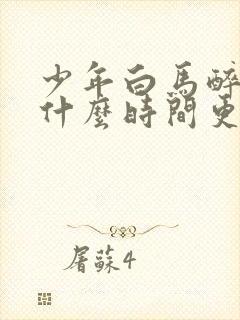 少年白馬醉
什麼時間更
屠蘇4